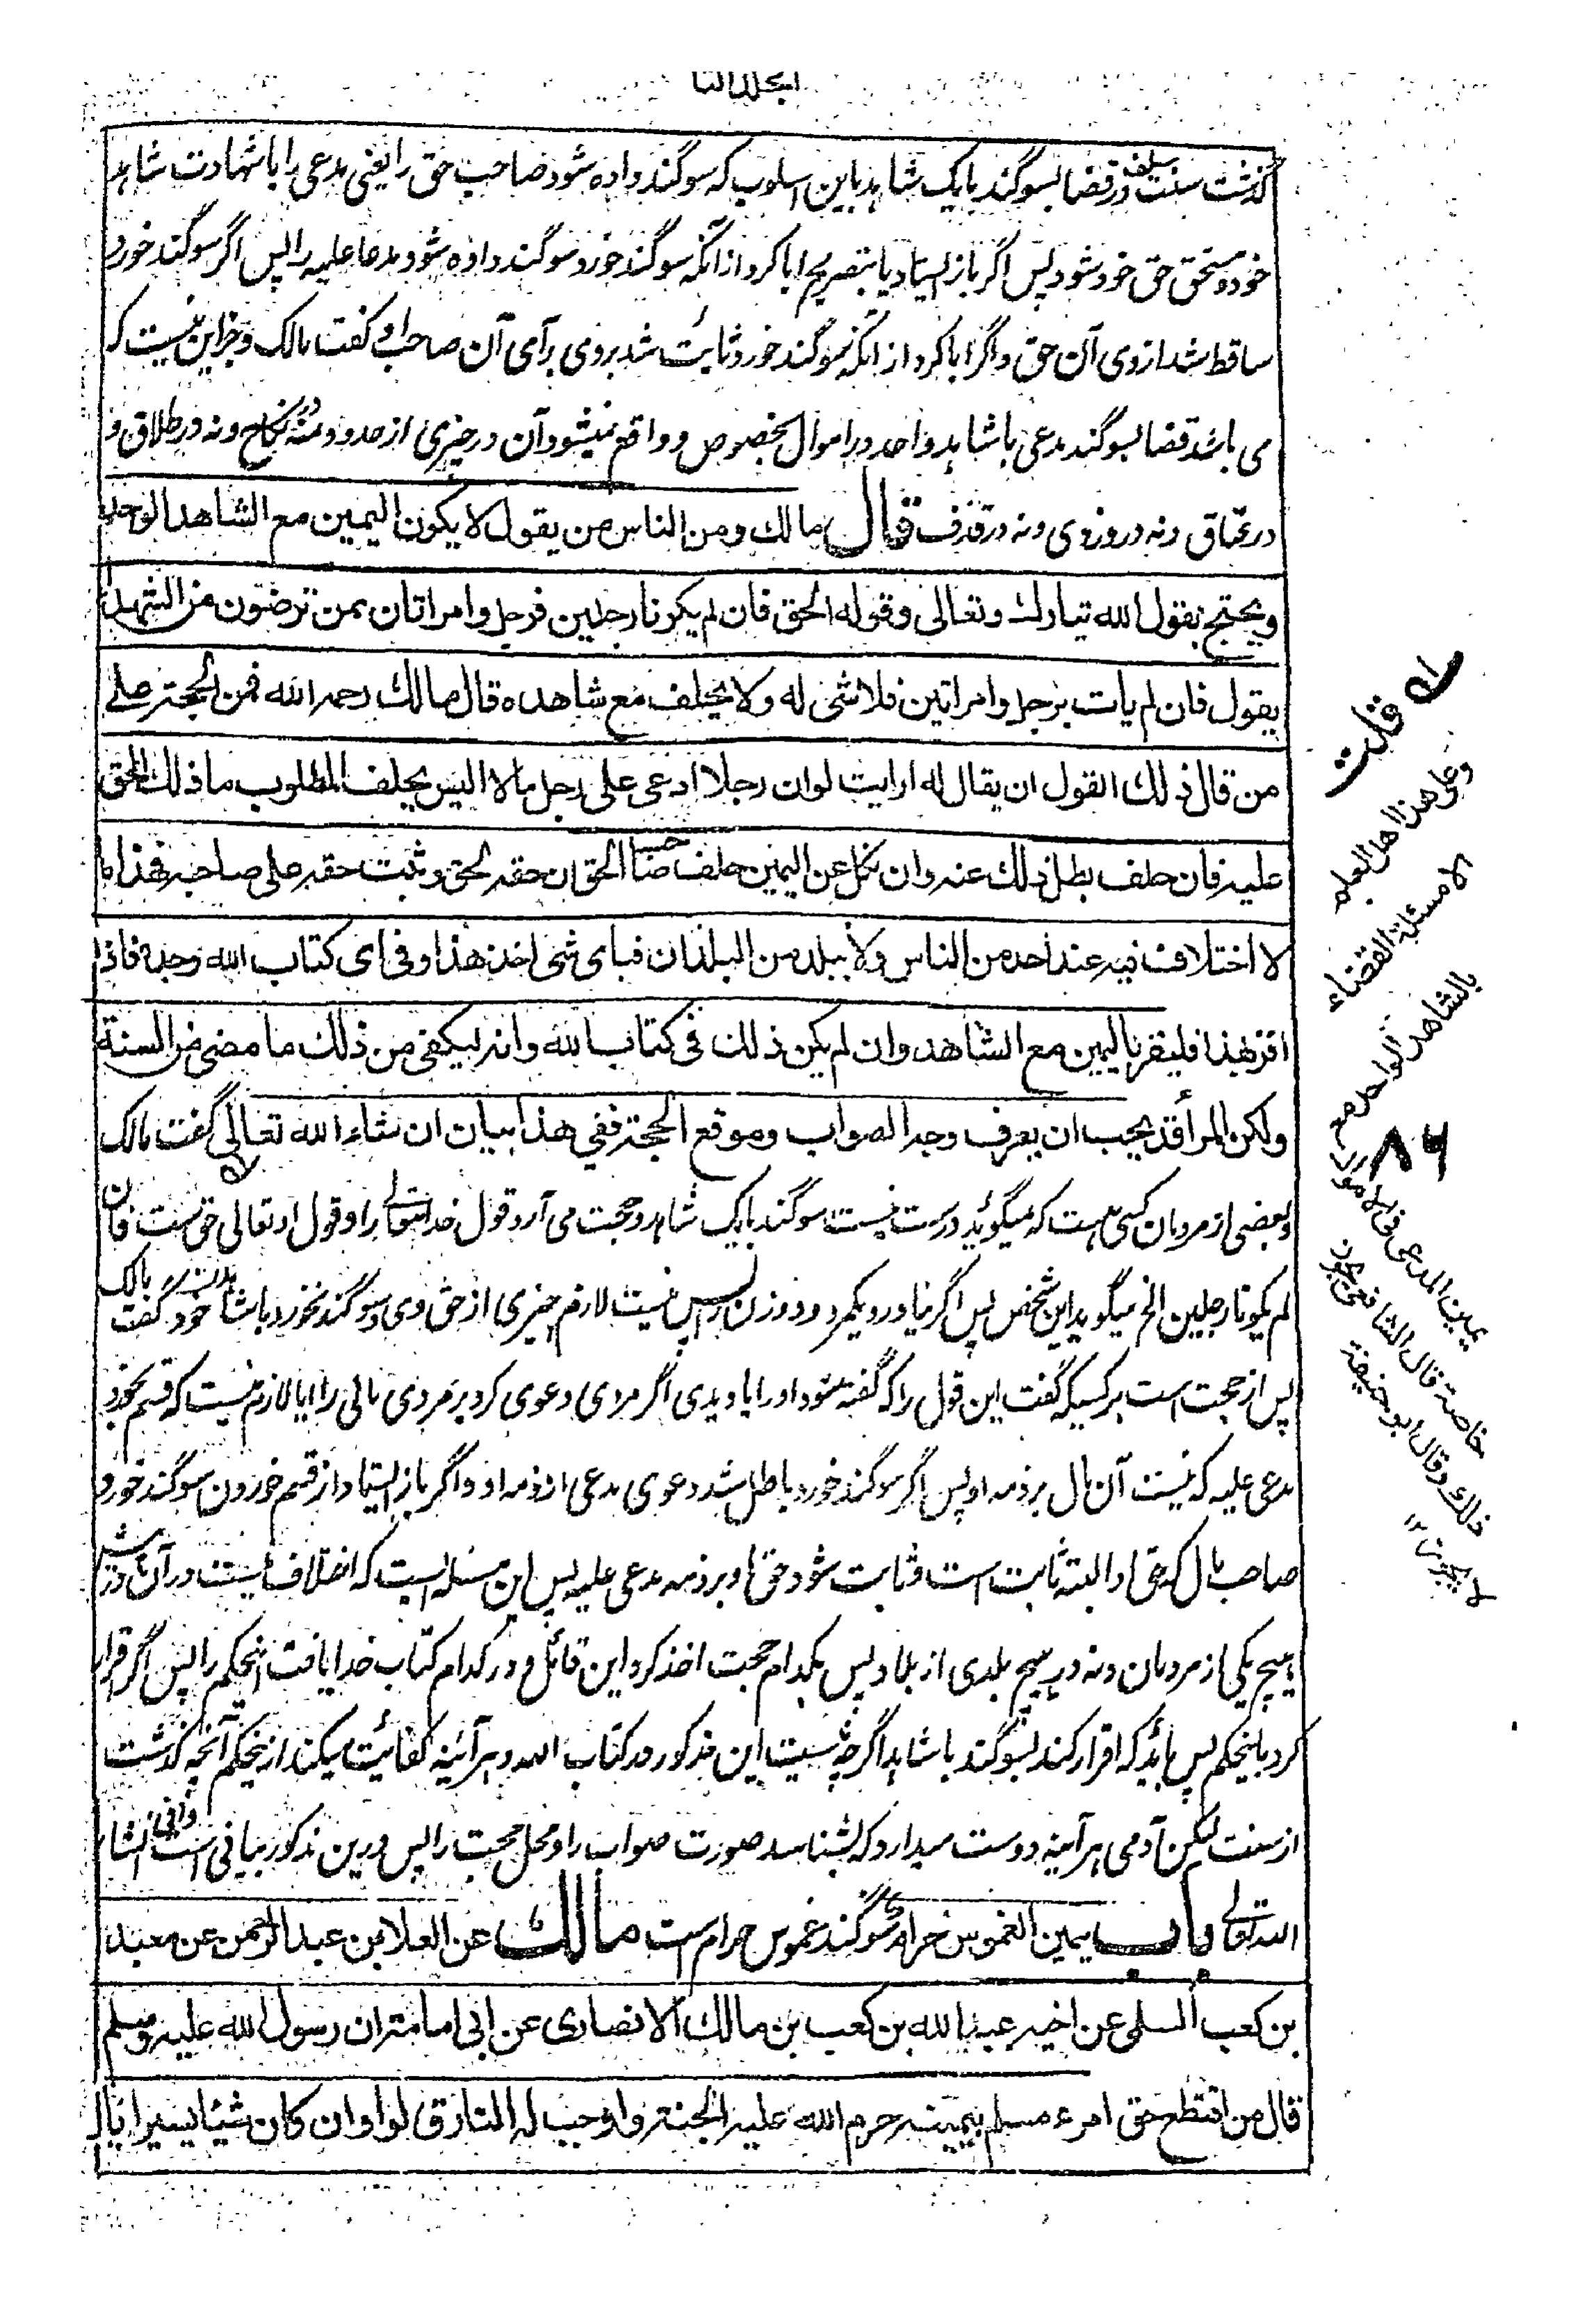 الجلد الثا
گذشت سنت سلف در قضا بسوگند با یک شاهد باین اسلوب که سوگند داده شود صاحب حق را یعنی مدعی را با شهادت شاهد
خود و مستحق حق خود شود پس اگر باز ایستاد یا بتصریح ابا کرد از آنکه سوگند خورد سوگند داده شود مدعا علیه را پس اگر سوگند خورد
ساقط شد از وی آن حق و اگر ابا کرد از آنکه سوگند خورد ثابت شد بر وی برای آن صاحب او گفت مالک و جز این نیست که
می باشد قضا بسوگند مدعی با شاهد واحد در اموال بخصوص و واقع نمیشود آن در چیزی از حدود و نه در نکاح و نه در طلاق و
در عتاق و نه در دزدی و نه در قذف قال مالك ومن الناس من يقول لا يكون اليمين مع الشاهد الواحد
ويحتج بقول الله تبارك وتعالى وقوله الحق فان لم يكونا رجلين فرجل وامراتان ممن ترضون من الشهداء
يقول فان لم يات برجل وامراتين فلا شئ له ولا يحلف مع شاهده قال مالك رحمه الله فمن الحجة على
من قال ذلك القول ان يقال له ارايت لو ان رجلا ادعى على رجل مالا اليس يحلف المطلوب ما ذلك الحق
عليه فان حلف بطل ذلك عنه وان نكل عن اليمين حلف صاحب الحق ان حقه لحق وثبت حقه على صاحبه فهذا ما
لا اختلاف فيه عند احد من الناس ولا ببلد من البلدان فباى شئ اخذ هذا وفى اى كتاب الله وجده فاذا
اقر بهذا فليقر باليمين مع الشاهد وان لم يكن ذلك فى كتاب الله وانه ليكفى من ذلك ما مضى من السنة
ولكن المرأ قد يحب ان يعرف وجه الصواب وموقع الحجة ففي هذا بيان ان شاء الله تعالى گفت مالک
و بعضی از مردمان کسی هست که میگوید درست نیست سوگند با یک شاهد و حجت می آرد قول خدا تعالی را و قول او تعالی حق ست فان
لم یکونا رجلین الخ میگوید این شخص پس اگر نیاورد و یکمرد و دو زن را پس نیست لازم چیزی از حق وی و سوگند نخورد با شاهد خود گفت مالک
پس از حجت است بر کسیکه گفت این قول را که گفته شود او را آیا دیدی اگر مردی دعوی کرد بر مردی مالی را آیا لازم نیست که قسم بخورد
مدعی علیه که نیست آن مال بر ذمه او پس اگر سوگند خورد باطل شد دعوی مدعی از ذمه او و اگر باز ایستاد از قسم خوردن سوگند خورد
صاحب مال که حق او البته ثابت است و ثابت شود حق او بر ذمه مدعی علیه پس این مسئله ایست که اختلاف نیست در آن نزد
هیچ یکی از مردمان و نه در هیچ بلدی از بلاد پس بکدام حجت اخذ کرد این قائل و در کدام کتاب خدا یافت اینحکم را پس اگر اقرار
کرد باینحکم پس باید که اقرار کند بسوگند با شاهد اگرچه نیست این مذکور در کتاب الله و هر آئینه کفایت میکند از ینحکم آنچه گذشت
از سنت لیکن آدمی هر آینه دوست میدارد که بشناسد صورت صواب را و محل حجت را پس درین مذکور بیانی است وافی انشا
الله تعالی باب یمین الغموس حرام سوگند غموس حرام است مالك عن العلا بن عبد الرحمن عن معبد
بن كعب السلمى عن اخيه عبد الله بن كعب بن مالك الانصارى عن ابى امامة ان رسول الله عليه وسلم
قال من اقتطع حق امرء مسلم بيمينه حرم الله عليه الجنة واوجب له النار قالوا وان كان شيئا يسيرا يا
له قلت
وعلى هذا اهل العلم
الا مسئلة القضاء
بالشاهد الواحد مع
يمين المدعى فى الاموال
خاصة قال الشافعى يجوز
ذلك وقال ابو حنيفة
لا يجوز ١٢
٨٦